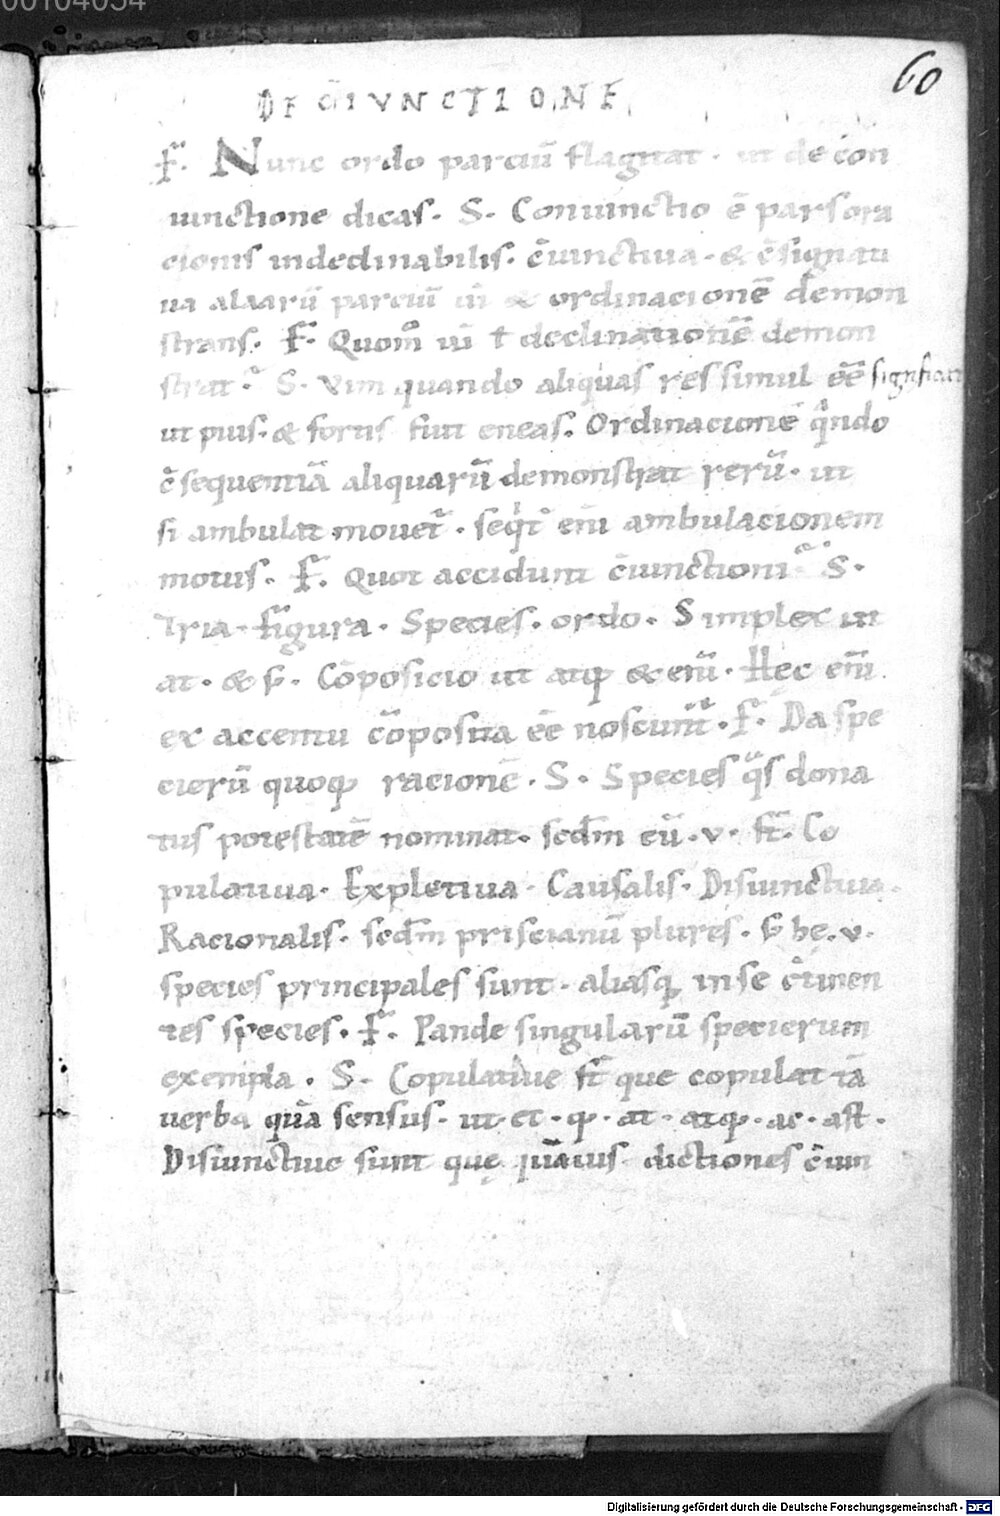 00104054
60
DE C̄IVNCTIONE
F̄. Nunc ordo parciū flagitat. ut de con
iunctione dicas. S. Coniunctio ē pars ora
cionis indeclinabilis. c̄iunctiua. & c̄signati
ua aliarū parciū uī & ordinacionē demon
strans. F̄. Quom̊ uī ł declinationē demon
strat. S. Vim quando aliquas res simul eē significat
ut pius. & fortis fuit eneas. Ordinacionē qͣndo
c̄sequentiā aliquarū demonstrat rerū. ut
si ambulat mouet᷑. seqͥt᷑ eni ambulacionem
motus. F̄. Quot accidunt c̄iunctioni S.
Tria. figura. Species. ordo. Simplex ut
at. & s̄. Cōposicio ut atqꝫ & enī. Hęc enī
ex accentu cōposita eē noscunt᷑. F̄. Da spe
cierū quoqꝫ racionē. S. Species qͣs dona
tus potestatē nominat. scdm eū. v. st̄. Co
pulatiua. Expletiua. Causalis. Disiunctiua.
Racionalis. scdm priscianū plures. s̄ hę. v.
species principales sunt. aliasqꝫ in se c̄tinen
tes species. F̄. Pande singularū specierum
exempla. S. Copulatiue st̄ que copulat tā
uerba quā sensus. ut. et. qꝫ. at. atqꝫ. ac. ast.
Disiunctiue sunt quę quāuis dictiones c̄iun
Digitalisierung gefördert durch die Deutsche Forschungsgemeinschaft - DFG